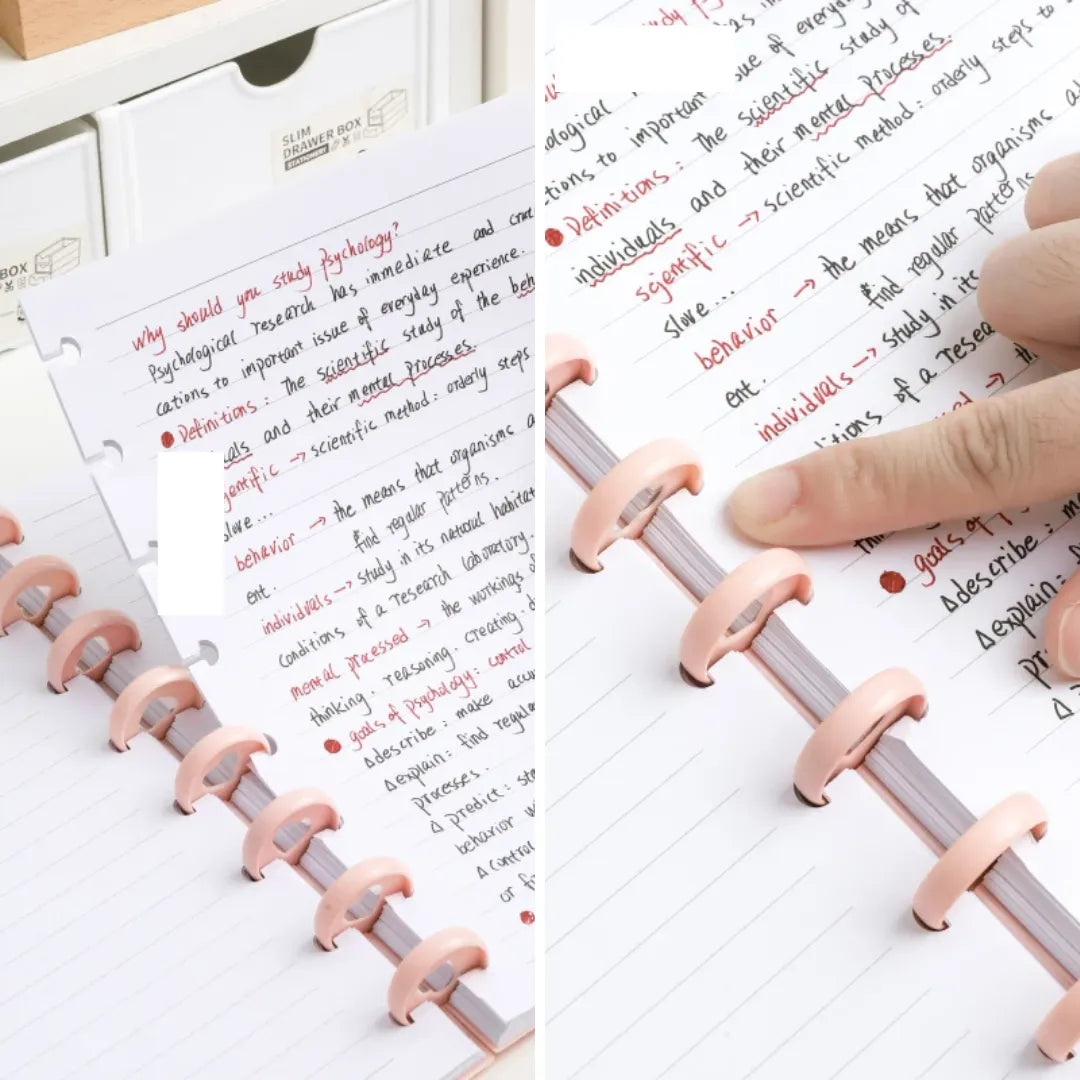 SLIM
DRAWER BOX
STATIONERY
BOX
Why should you study Psychology?
Psychological research has immediate and
cations to important issue of everyday experience.
Definitions: The scientific study of the
and their mental processes.
→ scientific method: orderly steps
slove...
behavior → the means that organisms
find regular patterns.
ent.
individvals → study in its natural
conditions of a research laboratory.
mental processed → the workings
thinking. reasoning. creating.
goals of psychology: control
Δdescribe: make
Δexplain: find
processes.
Δ predict:
behavior
Δ control
or
to important issue of
Definitions: The scientific study of
individuals and their mental processes.
scjentific → scientific method: orderly steps to
slove...
behavior → the means that organisms
find regular
ent.
individvals → study in its
of a
goals of
Δdescribe:
Δexplain:
Δ